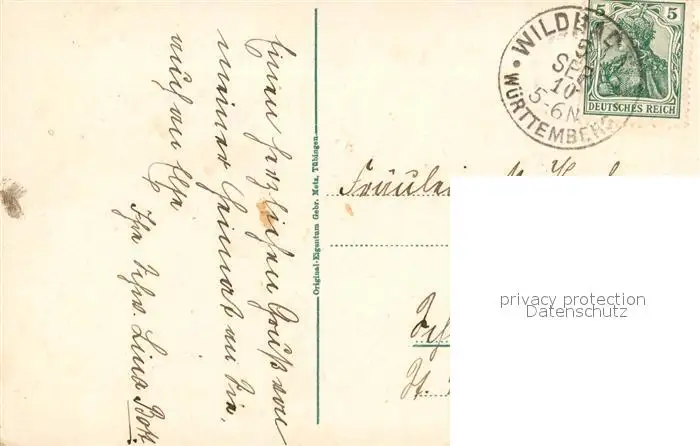 Einen herzlichen Gruß von
meiner Heimat an Sie,
auch an Else
Ihre Schw. Lina Bott.
Original-Eigentum Gebr. Metz, Tübingen.
WILDBAD
5
SEP
10
5-6N
WÜRTTEMBERG
5 5
DEUTSCHES REICH
Fräulein
privacy protection
Datenschutz